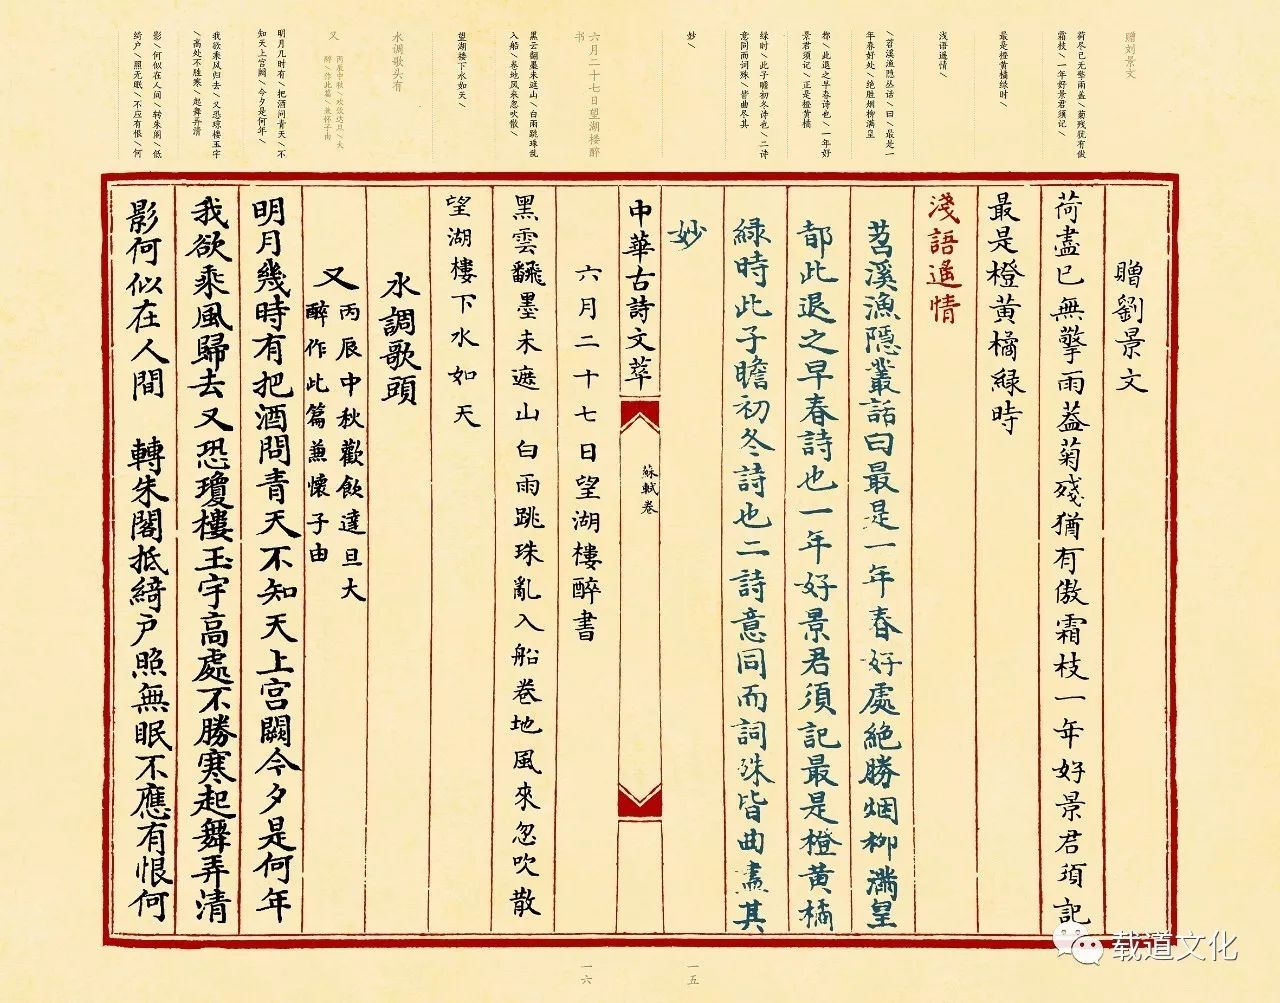 赠刘景文
荷尽已无擎雨盖\菊残犹有傲
霜枝\一年好景君须记\
最是橙黄橘绿时\
浅语遥情\
\苕溪渔隐丛话\曰\最是一
年春好处\绝胜烟柳满皇
都\此退之早春诗也\一年好
景君须记\正是橙黄橘
绿时\此子瞻初冬诗也\二诗
意同而词殊\皆曲尽其
妙\
六月二十七日望湖楼醉
书
黑云翻墨未遮山\白雨跳珠乱
入船\卷地风来忽吹散\
望湖楼下水如天\
水调歌头有
又
丙辰中秋\欢饮达旦\大
醉\作此篇\兼怀子由
明月几时有\把酒问青天\不
知天上宫阙\今夕是何年\
我欲乘风归去\又恐琼楼玉宇
\高处不胜寒\起舞弄清
影\何似在人间\转朱阁\低
绮户\照无眠\不应有恨\何
贈劉景文
荷盡已無擎雨蓋菊殘猶有傲霜枝一年好景君須記
最是橙黄橘緑時
淺語遙情
苕溪漁隱叢話曰最是一年春好處絶勝烟柳滿皇
都此退之早春詩也一年好景君須記最是橙黄橘
緑時此子瞻初冬詩也二詩意同而詞殊皆曲盡其
妙
中華古詩文萃
蘇軾卷
六月二十七日望湖樓醉書
黑雲飜墨未遮山白雨跳珠亂入船卷地風來忽吹散
望湖樓下水如天
水調歌頭
又
丙辰中秋歡飲達旦大
醉作此篇兼懷子由
明月幾時有把酒問青天不知天上宫闕今夕是何年
我欲乘風歸去又恐瓊樓玉宇高處不勝寒起舞弄清
影何似在人間 轉朱閣抵綺户照無眠不應有恨何
一五
一六
载道文化